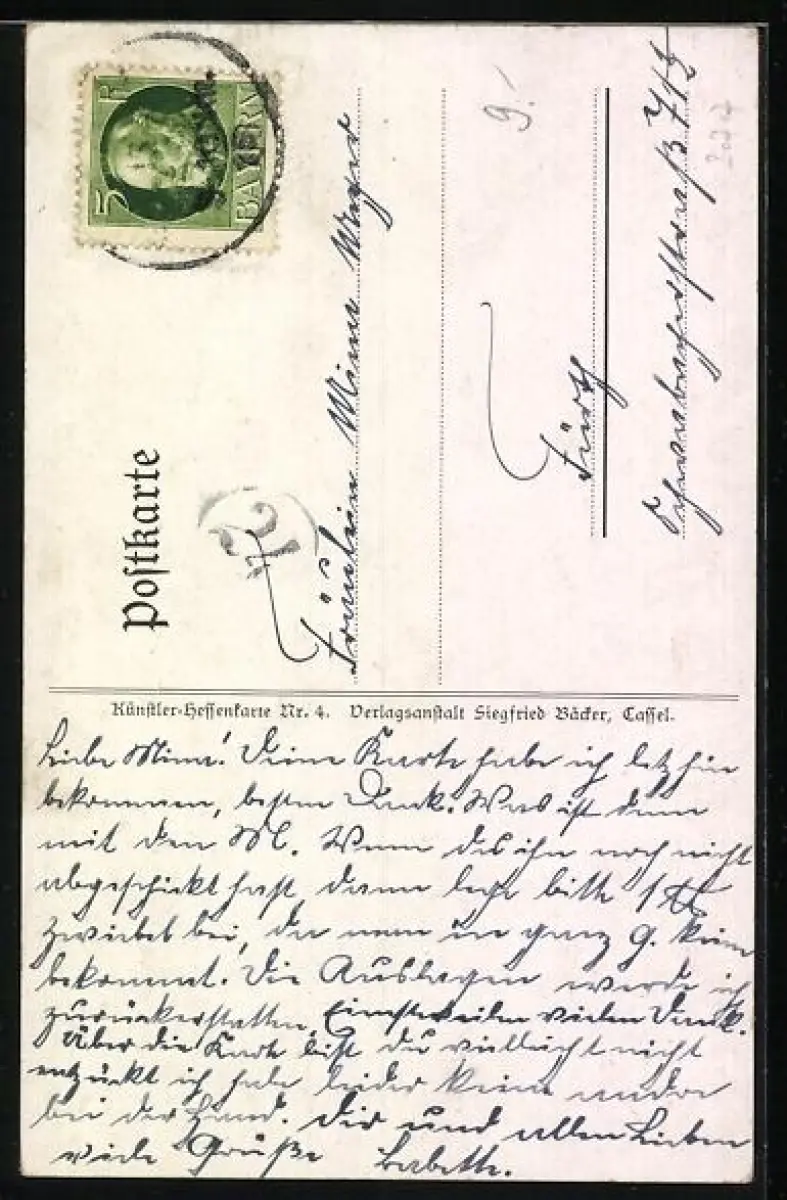 5 PF
BAYERN
Postkarte
Fräulein Mina Mayer
9.
Fürth
Schwabacherstraße 71
Künstler-Hessenkarte Nr. 4. Verlagsanstalt Siegfried Bäcker, Cassel.
Liebe Mina! Deine Karte habe ich letzhin
bekommen, besten Dank. Was ist denn
mit den M. Wenn du ihn noch nicht
abgeschickt hast, dann lege bitte 1 ℔
Zwiebel bei, da man in ganz G. keine
bekommt. Die Auslagen werde ich
zurückerstatten. Einstweilen vielen Dank.
Über die Karte bist du vielleicht nicht
entzückt ich habe leider keine andre
bei der Hand. Dir und allen Lieben
viele Grüße Babette.